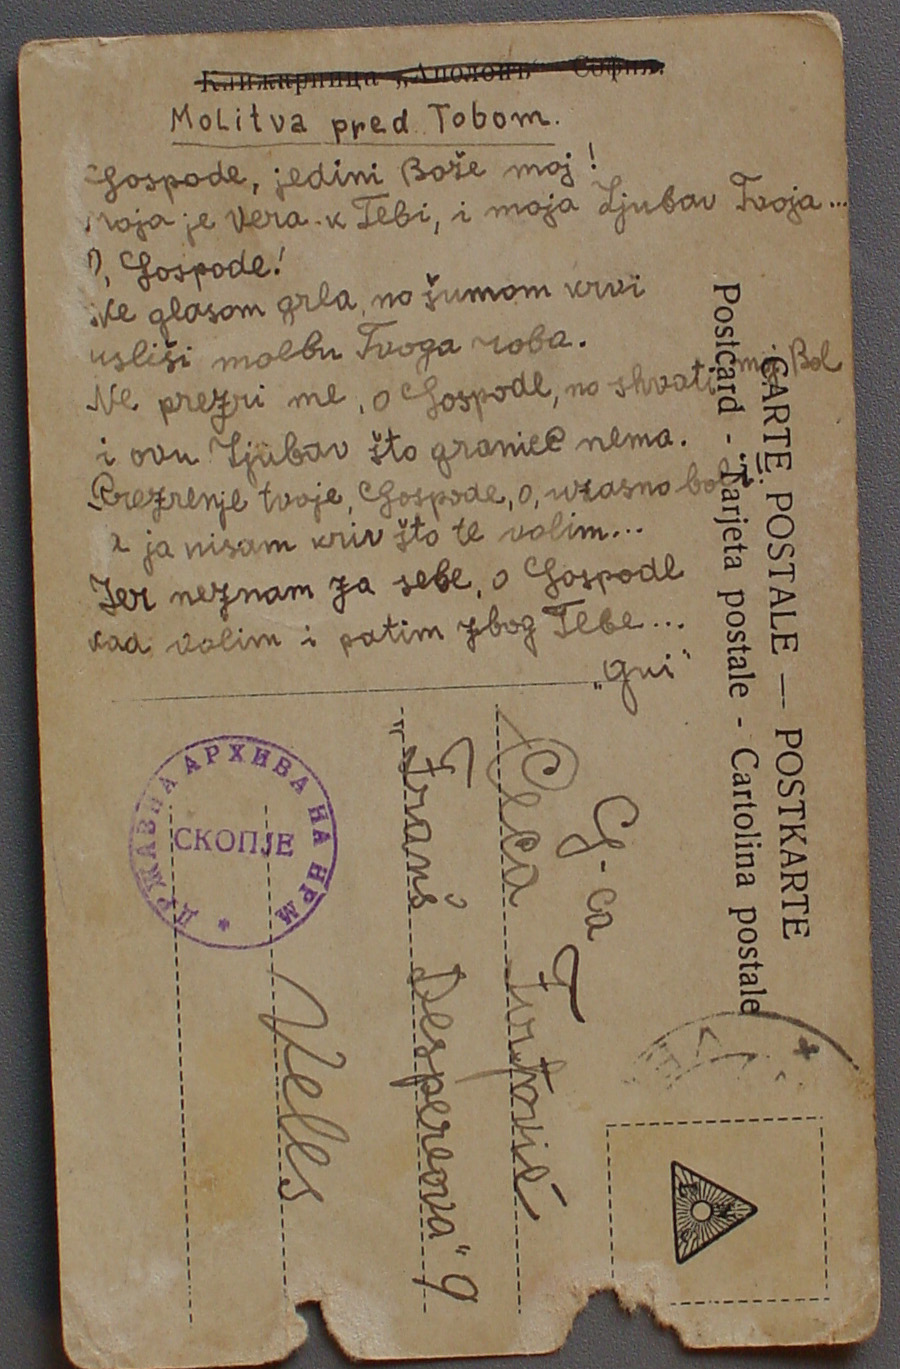 Книжарница „Аполонъ“ София.
Molitva pred Tobom.
Gospode, jedini Bože moj!
Moja je Vera k Tebi, i moja Ljubav Tvoja...
O, Gospode!
Ne glasom grla, no šumom krvi
usliši molbu Tvoga roba.
Ne prezri me, o Gospode, no shvati moj Bol
i ovu Ljubav što granice nema.
Prezrenje tvoje, Gospode, o, užasno boli
ja nisam kriv što te volim...
Jer neznam za sebe, o Gospode
kad volim i patim zbog Tebe...
CARTE POSTALE — POSTKARTE
Postcard - Tarjeta postale - Cartolina postale
G-ca
Ceca
„Franš Despereova“ 9
Veles
ДРЖАВНА АРХИВА НА НРМ
СКОПЈЕ